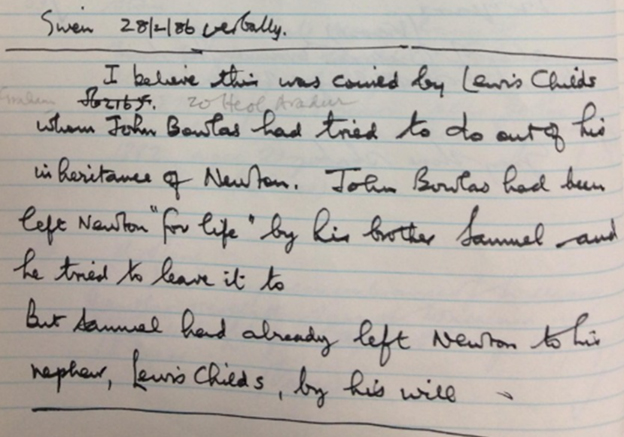 Given 28/2/86 verbally.
I believe this was coined by Lewis Childs
20 Heol
whom John Bowlas had tried to do out of his
inheritance of Newton. John Bowlas had been
left Newton "for life" by his brother Samuel and
he tried to leave it to
But Samuel had already left Newton to his
nephew, Lewis Childs, by his will